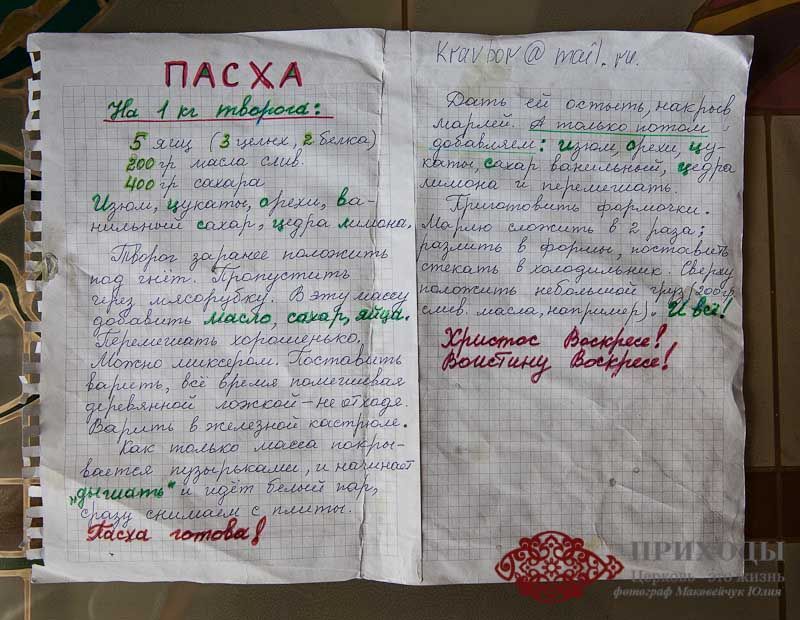 ПАСХА
На 1 кг творога:
5 яиц (3 целых, 2 белка)
200 гр масла слив.
400 гр сахара
Изюм, цукаты, орехи, ва-
нильный сахар, цедра лимона.
Творог заранее положить
под гнёт. Пропустить
через мясорубку. В эту массу
добавить масло, сахар, яйца.
Перемешать хорошенько.
Можно миксером. Поставить
варить, всё время помешивая
деревянной ложкой – не отходя.
Варить в железной кастрюле.
Как только масса покры-
вается пузырьками, и начинает
„дышать“ и идёт белый пар,
сразу снимаем с плиты.
Пасха готова!
kravbor@mail.ru.
Дать ей остыть, накрыв
марлей. А только потом
добавляем: изюм, орехи, цу-
каты, сахар ванильный, цедра
лимона и перемешать.
Приготовить формочки.
Марлю сложить в 2 раза;
разлить в формы, поставить
стекать в холодильник. Сверху
положить небольшой груз (200 гр
слив. масла, например). И всё!
Христос Воскресе!
Воистину Воскресе!
ПРИХОДЫ
Церковь - это жизнь
фотограф Маковейчук Юлия